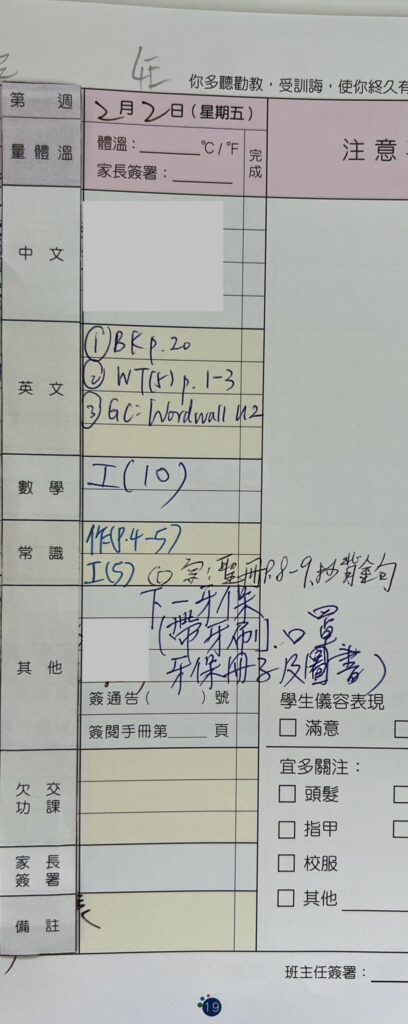 4E
你多聽勸教，受訓誨，使你終久有
第 週
2月2日(星期五)
量體溫
體溫：______°C/°F
家長簽署：______
完成
注意
中文
英文
① BK p. 20
② WT(5) p. 1-3
③ GC: Wordwall U2
數學
I(10)
常識
作(P.4-5)
I(5) ① 宗：聖冊P.8-9,抄背金句
其他
下一牙保
(帶牙刷,口罩
牙保冊子及圖書)
簽通告( )號
簽閱手冊第____頁
學生儀容表現
□ 滿意
欠交功課
宜多關注：
□ 頭髮
□ 指甲
家長簽署
□ 校服
備註
□ 其他
班主任簽署：
19